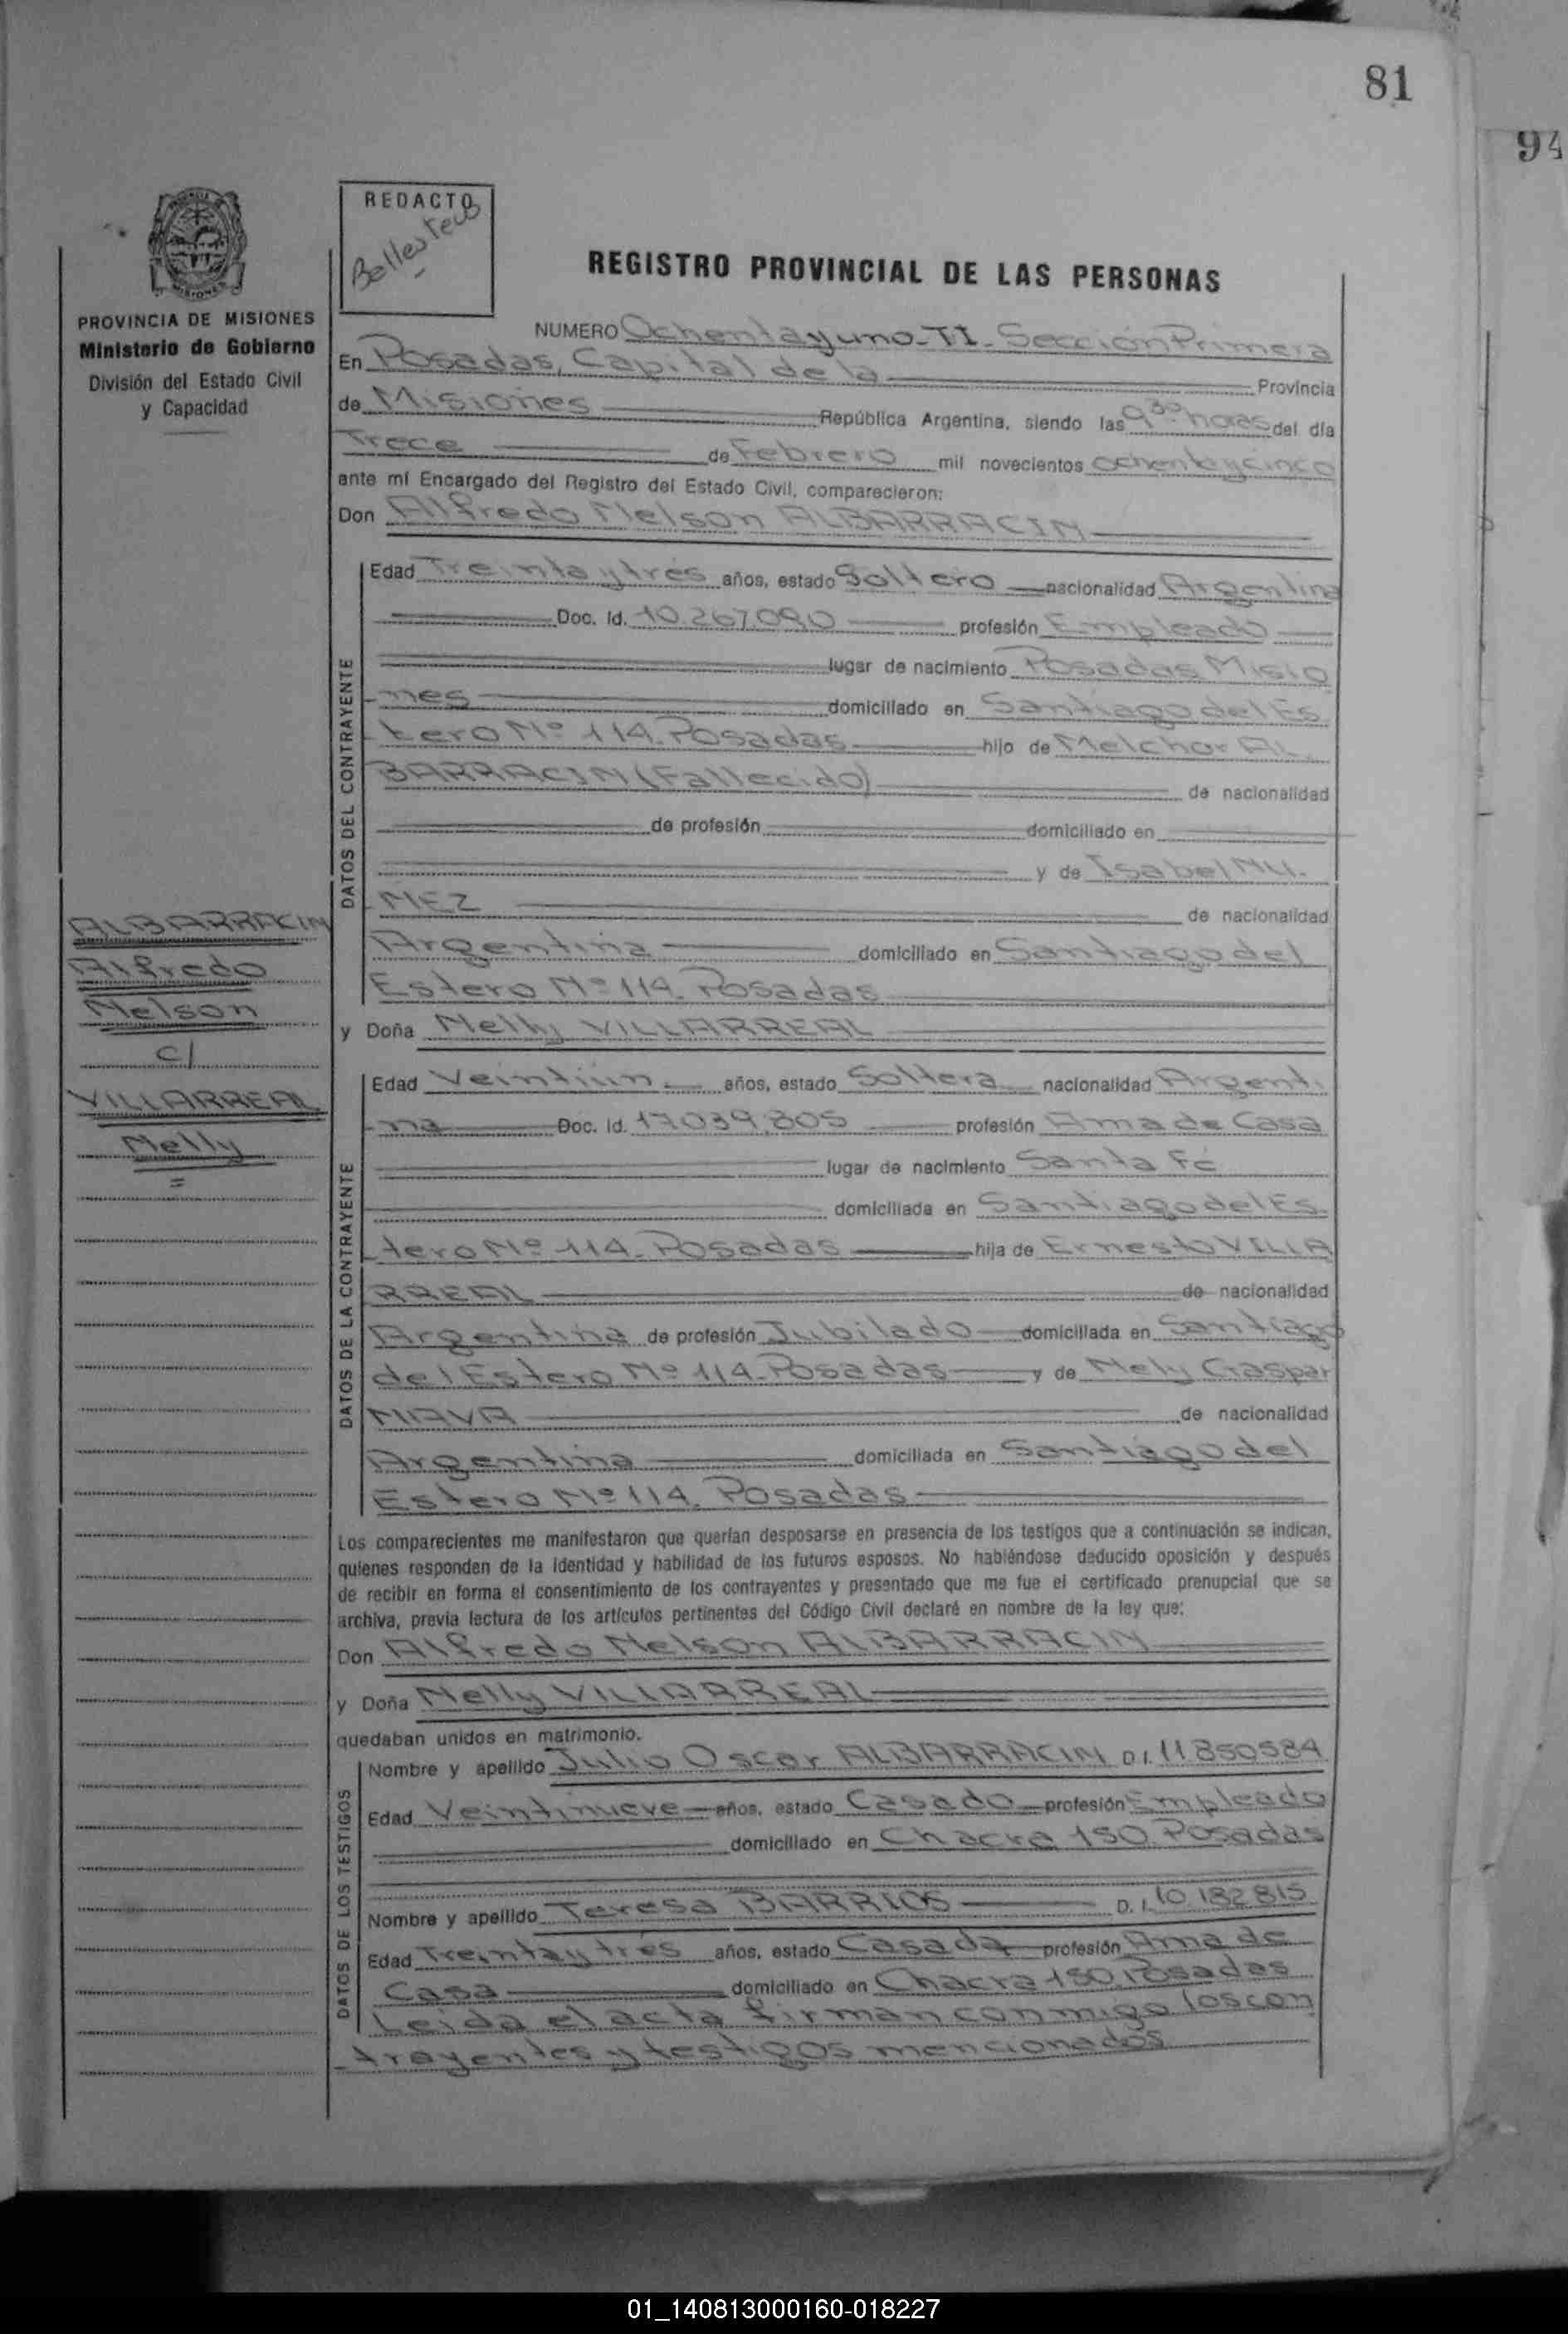 81
94
REDACTO
PROVINCIA DE MISIONES
Ministerio de Gobierno
División del Estado Civil
y Capacidad
REGISTRO PROVINCIAL DE LAS PERSONAS
NUMERO Ochentayuno-II-Sección Primera
En Posadas, Capital de la Provincia
de Misiones República Argentina, siendo las 9 30 horas del día
Trece de Febrero mil novecientos ochentaycinco
ante mí Encargado del Registro del Estado Civil, comparecieron:
Don Alfredo Nelson ALBARRACIN
DATOS DEL CONTRAYENTE
Edad Treintaytres años, estado Soltero nacionalidad Argentina
Doc. Id. 10.267.090 profesión Empleado
lugar de nacimiento Posadas Misio
nes domiciliado en Santiago del Es
tero Nº 114. Posadas hijo de Melchor AL
BARRACIN (Fallecido) de nacionalidad
de profesión domiciliado en
y de Isabel NU.
ÑEZ de nacionalidad
Argentina domiciliado en Santiago del
Estero Nº 114. Posadas
y Doña Nelly VILLARREAL
ALBARRACIN
Alfredo
Nelson
C/
VILLARREAL
Nelly
=
DATOS DE LA CONTRAYENTE
Edad Veintiún años, estado Soltera nacionalidad Argenti
na Doc. Id. 17.039.805 profesión Ama de Casa
lugar de nacimiento Santa Fé
domiciliada en Santiago del Es
tero Nº 114. Posadas hija de Ernesto VILLA
RREAL de nacionalidad
Argentina de profesión Jubilado domiciliada en Santiago
del Estero Nº 114. Posadas y de Nely Gaspar
NAVA de nacionalidad
Argentina domiciliada en Santiago del
Estero Nº 114. Posadas
Los comparecientes me manifestaron que querían desposarse en presencia de los testigos que a continuación se indican,
quienes responden de la identidad y habilidad de los futuros esposos. No habiéndose deducido oposición y después
de recibir en forma el consentimiento de los contrayentes y presentado que me fue el certificado prenupcial que se
archiva, previa lectura de los artículos pertinentes del Código Civil declaré en nombre de la ley que:
Don Alfredo Nelson ALBARRACIN
y Doña Nelly VILLARREAL
quedaban unidos en matrimonio.
DATOS DE LOS TESTIGOS
Nombre y apellido Julio Oscar ALBARRACIN D.I. 11.850.584
Edad Veintinueve años, estado Casado profesión Empleado
domiciliado en Chacra 150. Posadas
Nombre y apellido Teresa BARRIOS D.I. 10.182.815
Edad Treintaytres años, estado Casada profesión Ama de
Casa domiciliado en Chacra 150. Posadas
Leida el acta firman conmigo los con
trayentes y testigos mencionados
01_140813000160-018227